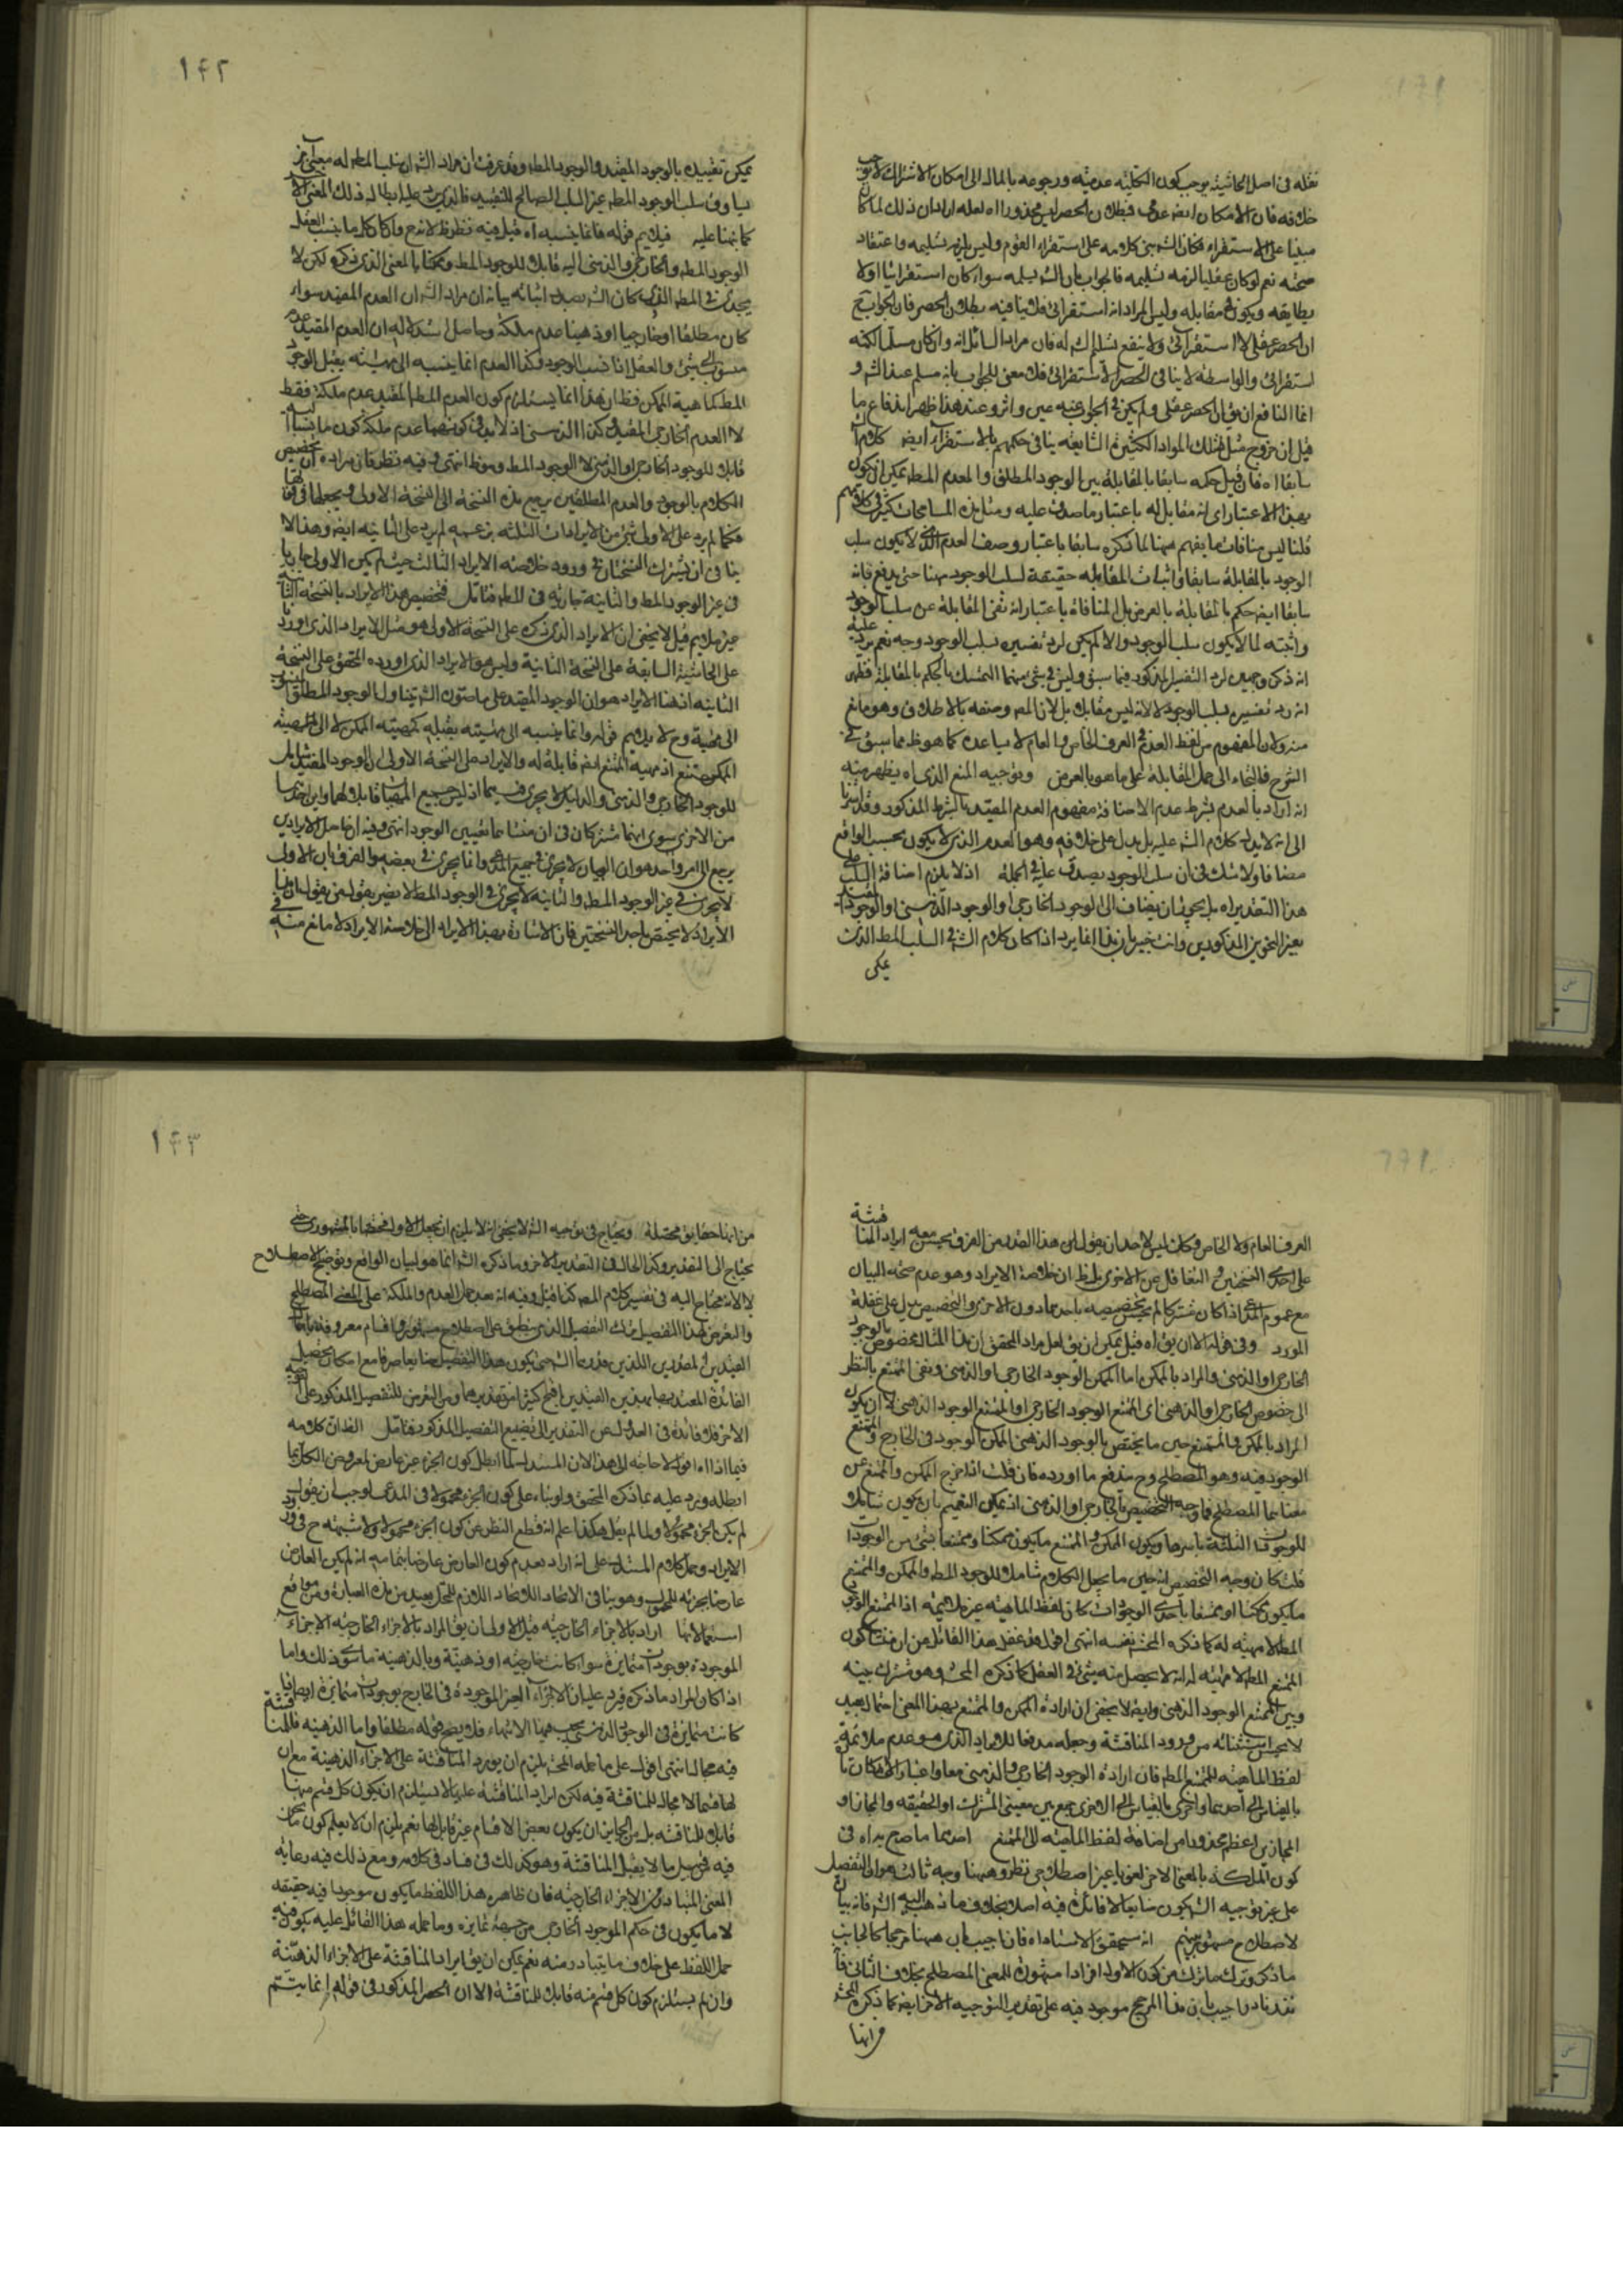 ١٤٢
نقله فى اصل الحاشية يوجب كون الكلية عدمية ورجوعه بالمال الى امكان الاشتراك لا يوجب
خلافه فان الامكان ايضا عدمى فبطلان الحصر ليس محذورا اه لعله اراد ان ذلك لما كان
مبنيا على الاستقراء فكان الشه بنى كلامه على استقراء القوم وليس يلزمه تسليمه واعتقاد
صحته نعم لو كان عقليا لزمه تسليمه فالجواب بان الشه يسلمه سواء كان استقرائيا اولا
يطابقه ويكون مقابله وليس المراد انه استقرائى فلا ينافيه بطلان الحصر فان الجواب ح
ان الحصر عقلى لا استقرائى ولا ينفع تسليم الشه له فان مراد السائل انه وان كان مسلما لكنه
استقرائى والواسطة لا ينافى الحصر الاستقرائى فلا معنى للجواب بانه مسلم عند الشه و
انما النافع ان يق ان الحصر عقلى ولم يكن فى الجواب عنه عين واثر وعند هذا ظهر اندفاع ما
قيل ان خروج مثل تلك المواد الكثيرة الشايعة ينافى حكمهم بالاستقراء ايضا كلام
سابقا اه فان قيل حكمه سابقا بالمقابلة بين الوجود المطلق والمعدوم المط يمكن ان يكون
بهذا الاعتبار اى انه مقابل له باعتبار ما صدق عليه ومثل هذه المسامحات كثير فى كلامهم
قلنا ليس منافاة ما يفهم ههنا لما ذكره سابقا باعتبار وصف العدم الذى لا يكون سلب
الوجود بالمقابلة سابقا واثبات المقابلة حقيقة لسلب الوجود ههنا حتى يدفع بانه
سابقا ايضا حكم بالمقابلة بالعرض بل المنافاة باعتبار انه نفى المقابلة عن سلب الوجود
واثبته لما لا يكون سلب الوجود والا لم يكن لرد تفسيره بسلب الوجود وجه نعم يرد عليه
انه ذكر وجهين لرد التفسير المذكور فيما سبق وليس فى شئ منهما التمسك بالحكم بالمقابلة فظهر
انه رد تفسيره بسلب الوجود لا لانه ليس مقابلا بل لان المص وصفه بالاطلاق وهو مانع
منه ولان المفهوم من لفظ العدم فى العرف الخاص والعام لا يساعده كما هو ظ مما سبق فى
الشرح فالتجاء الى حمل المقابلة على ما هو بالعرض وتوجيه المنع الذى اه يظهر منه
انه اراد بالعدم بشرط عدم الاضافة مفهوم العدم المقيد بالشرط المذكور وقد اشرنا
الى انه لا يدل كلام الشه عليه بل يدل على خلافه وهو العدم الذى لا يكون بحسب الواقع
مضافا ولا شك فى ان سلب الوجود يصدق عليه فى الجملة اذ لا يلزم اضافة السلب على
هذا التقدير اه بل يجوز ان يضاف الى الوجود الخارجى او الوجود الذهنى او الوجود المقيد
بغير النحوين المذكورين وانت خبير بان هذا انما يرد اذا كان كلام الشه فى السلب المط الذى
يمكن
يمكن تقييده بالوجود المقيد والوجود المط وقد عرفت ان مراد الشه ان سلب المط له معنى اخر
يساوق سلب الوجود المط غير السلب الصالح للتقييد فالذى يرد عليه ابطال ذلك المعنى الاخر
كما نبهنا عليه فيلايم قوله فانما ينسبه اه قيل فيه نظر ظ لاندفع واكا كل ما ينسب العقل
الوجود المط والخارجى والذهنى اليه قابلا للوجود المط وممكنا بالمعنى الذى ذكره لكن لا
يجدى فى المط الذى كان الشه بصدد اثباته بيانه ان مراد الشه ان العدم المقيد سواء
كان مطلقا او خارجيا او ذهنيا عدم ملكة وحاصل استدلاله ان العدم المقيد عدم
منسوب الى شئ والعقل اذا نسب الوجود وكذا العدم انما ينسبه الى مهية يقبل الوجود
المط كماهية الممكن فظ ان هذا انما يستلزم كون العدم المط المقيد عدم ملكة فقط
لا العدم الخارجى المقيد وكذا الذهنى اذ لا بد فى كونهما عدم ملكة كون ما نسبا اليه
قابلا للوجود الخارجى او الذهنى لا الوجود المط وهو ظ انتهى وفيه نظر فان مراده ان تخصيص
الكلام بالوجود والعدم المطلقين يرجع هذه النسخة الى النسخة الاولى ويجعلها فى قوتها
فكما لم يرد على الاولى شئ من الايرادات الثلثة بزعمه لم يرد على الثانية ايضا وهذا لا
ينافى ان يشترك النسختان فى ورود خلاصة الايراد الثالث حيث لم يكن الاولى جاريا
فى غير الوجود المط والثانية جارية فى المط فتامل فتخصيص هذا الايراد بالنسخة الثانية
غير ملايم قيل لا يخفى ان الايراد الذى ذكره على النسخة الاولى هو مثل الايراد الذى اورد
على الحاشية السابقة على النسخة الثانية وليس هو الايراد الذى اورده المحقق على النسخة
الثانية اذ هذا الايراد هو ان الوجود المقيد على ما صوره الشه يتناول الوجود المطلق المنسوب
الى مهية وح لا يلايم قوله وانما ينسبه الى مهية يقبله كمهية الممكن لا الى المهية
الممكن ممتنع اذ مهية الممتنع ايضا قابلة له والايراد على النسخة الاولى ان الوجود المقيد شامل
للوجود الخارجى والذهنى والدليل لا يجرى فيهما اذ ليس جميع المهيات قابلا لهما واين احدهما
من الاخرى سوى انهما مشتركان فى ان منشاءهما تقييد الوجود انتهى وفيه ان حاصل الايرادين
يرجع الى امر واحد هو ان البيان لا يجرى فى جميع المدعى وانما يجرى فى بعضه والفرق بان الاولى
لا يجرى فى غير الوجود المط والثانية لا يجرى فى الوجود المط لا يضر بقول من يقول ان هذا
الايراد لا يختص باحدى النسختين فان الاشارة بهذا الايراد الى خلاصة الايراد لا مانع منه فى
١٤٣
العرف العام ولا الخاص وكانه ليس لاحد ان يقول ان هذا القدر من الفرق يحسن معه ايراد المناقشة
على احدى النسختين والتغافل عن الاخرى بل ظ ان خلاصة الايراد وهو عدم صحة البيان
مع عموم المدعى اذا كان مشتركا لم يحسن تخصيصه باحدهما دون الاخرى والتخصيص يدل على غفلة
المورد وفى قوله الا ان يق اه قيل يمكن ان يق لعل مراد المحقق ان هذا المثال مخصوص بالوجود
الخارجى او الذهنى والمراد بالممكن اما الممكن بالوجود الخارجى او الذهنى ونفى الممتنع بالنظر
الى خصوص الخارجى او الذهنى اى الممتنع الوجود الخارجى او الممتنع الوجود الذهنى لا ان يكون
المراد بالممكن والممتنع حين ما يختص بالوجود الذهنى الممكن بالوجود فى الخارج والممتنع
الوجود فيه وهو المصطلح وح يندفع ما اورده فان قلت اذا خرج الممكن والممتنع عن
معناهما المصطلح فما وجه التخصيص بالخارجى او الذهنى اذ يمكن التعميم بان يكون شاملا
للوجودات الثلثة باسرها ويكون الممكن والممتنع ما يكون ممكنا وممتنعا بشئ من الوجودات
قلت كان وجه التخصيص انه حين ما يجعل الكلام شاملا للوجود المط والممكن والممتنع
ما يكون ممكنا او ممتنعا باحدى الوجودات كان لفظ الماهية غير ملايمة اذ الممتنع الوجود
المط لا مهية له كما ذكره المحشى نفسه انتهى اقول قد غفل هذا القائل عن ان منشاء كون
الممتنع المط لا مهية له انه لا يحصل منه شئ فى العقل كما ذكره المحشى وهو مشترك بينه
وبين الممتنع الوجود الذهنى وايضا لا يخفى ان ارادة الممكن والممتنع بهذا المعنى احتمال بعيد
لا يحسن استثنائه من ورود المناقشة وجعله مدفعا للايراد الذى هو عدم ملائمة
لفظ الماهية للممتنع المط فان ارادة الوجود الخارجى والذهنى معا واعتبار الامكان تارة
بالقياس الى احدهما واخرى بالقياس الى الاخرى جمع بين معنيى المشترك او الحقيقة والمجاز او
المجازين اعظم محذورا من اضافة لفظ الماهية الى الممتنع احدهما ما صرح به اه فى
كون الملكة بالمعنى الاخر لغويا غير اصطلاحى نظر وههنا وجه ثالث هو ان التفصيل
على غير توجيه الشه يكون ضايعا لا فائدة فيه اصلا بخلاف ما ذهب اليه الشه فانه بيان
لاصطلاح مشهور بينهم انه سيحقق الاستاد اه فان اجيب بان ههنا مرجحا كالجانب
ما ذكره وترك ما ترك من كون الاول افرادا مشهورة للمعنى المصطلح بخلاف الثانى فا
نقد نادرا جيب بان هذا المرجح موجود فيه على تقدير التوجيه الاخر ايضا كما ذكره المحشى
فرانها
من انها حقايق محتملة ويحتاج فى توجيه الشه لا يخفى انه لا يلزم ان يجعل الاول مختصا بالمشهورى حتى
يحتاج الى التغيير وكذا الحال فى التقدير الاخر وما ذكره الشه انما هو لبيان الواقع وتوضيح الاصطلاح
لا لانه محتاج اليه فى تفسير كلام المص كذا قيل وفيه انه بعد حمل العدم والملكة على المعنى المصطلح
والتعرض لهذا التفصيل ترك التفصيل الذى ينطبق على اصطلاح مشهور واقسام معروفة باعتبار
القيدين المصدرين اللذين قدرهما الشه حتى يكون هذا التفصيل ضايعا صرفا مع امكان تحصيل
الفائدة المعتد بها بهذين القيدين اقبح كثيرا من تقديرهما ومن التعرض للتفصيل المذكور على التوجيه
الاخر فلا فائدة فى العدول عن التقدير الى تضييع التفصيل المذكور فتامل الغذا ان كلامه
فيما اذا اه اقول لا حاجة الى هذا لان المستدل لما ابطل كون الجزء غير عارض لمعروض الكل بما
ابطله ويرد عليه بما ذكره المحقق ولو بناء على كون الجزء محمولا فى المدعى لوجب ان يقول
لم يكن الجزء محمولا ولما لم يقل هكذا علم انه قطع النظر عن كون الجزء محمولا ولا شبهة ح فى ورود
الايراد وحمل كلام المستدل على انه اراد بعدم كون العارض عارضا بتمامه انه لم يكن العارض
عارضا بجزئه المحمول وهو ينافى الاتحاد اللازم للحمل بعيد من هذه العبارة ومن مواقع
استعمالاتها اراد بالاجزاء الخارجية قيل الاولى ان يق المراد بالاجزاء الخارجية الاجزاء
الموجودة بوجودات متمايزة سواء كانت خارجية او ذهنية وبالذهنية ما سوى ذلك واما
اذا كان المراد ما ذكره فيرد عليه ان الاجزاء الغير الموجودة فى الخارج بوجودات متمايزة ايضا اذا
كانت متمايزة فى الوجود الذهنى يجب فيها الانتهاء فلا يصح قوله مطلقا واما الذهنية فالمناقشة
فيه مجال انتهى اقول على ما حمله المحشى يلزم ان يورد المناقشة على الاجزاء الذهنية مع ان
لها قسما لا مجال للمناقشة فيه لكن ايراد المناقشة عليها لا يستلزم ان يكون كل قسم منها
قابلا للمناقشة بل من الجايز ان يكون بعض الاقسام غير قابل لها نعم يلزم ان لا يعلم كون ما نحن
فيه من قبيل ما لا يقبل المناقشة وهو كذلك فى فساد فى كلامه ومع ذلك فيه رعاية
المعنى المتبادر من الاجزاء الخارجية فان ظاهر هذا اللفظ ما يكون موجودا فيه حقيقة
لا ما يكون فى حكم الموجود الخارجى من جهة تمايزه وما حمله هذا القائل عليه يكون فيه
حمل اللفظ على خلاف ما يتبادر منه نعم يمكن ان يق ايراد المناقشة على الاجزاء الذهنية
وان لم يستلزم كون كل قسم منه قابلا للمناقشة الا ان الحصر المذكور فى قوله انما يتم